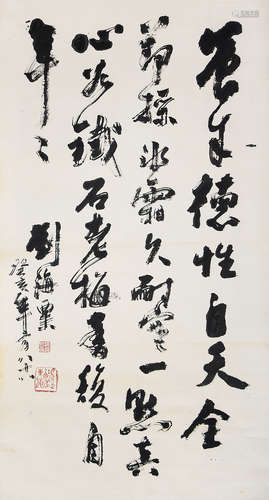 養成德性自天全
節操冰霜久耐寒一點真
心如鐵石老梅復自
年々
劉海粟
癸亥年方八八